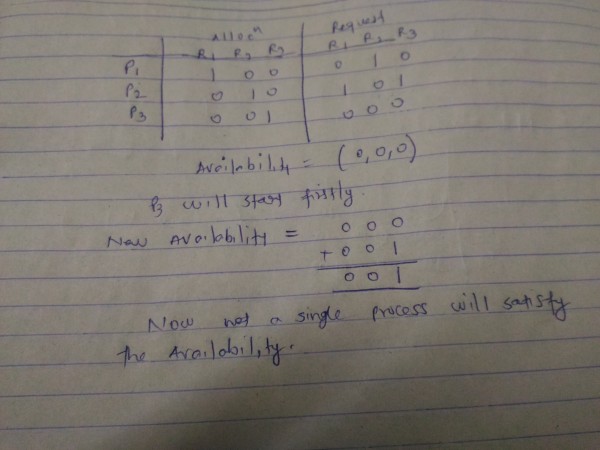 Allocn Request
R1 R2 R3 R1 R2 R3
P1 1 0 0 0 1 0
P2 0 1 0 1 0 1
P3 0 0 1 0 0 0
Availability = (0,0,0)
P3 will start firstly.
New Availability = 0 0 0
+ 0 0 1
0 0 1
Now not a single process will satisfy
the Availability.